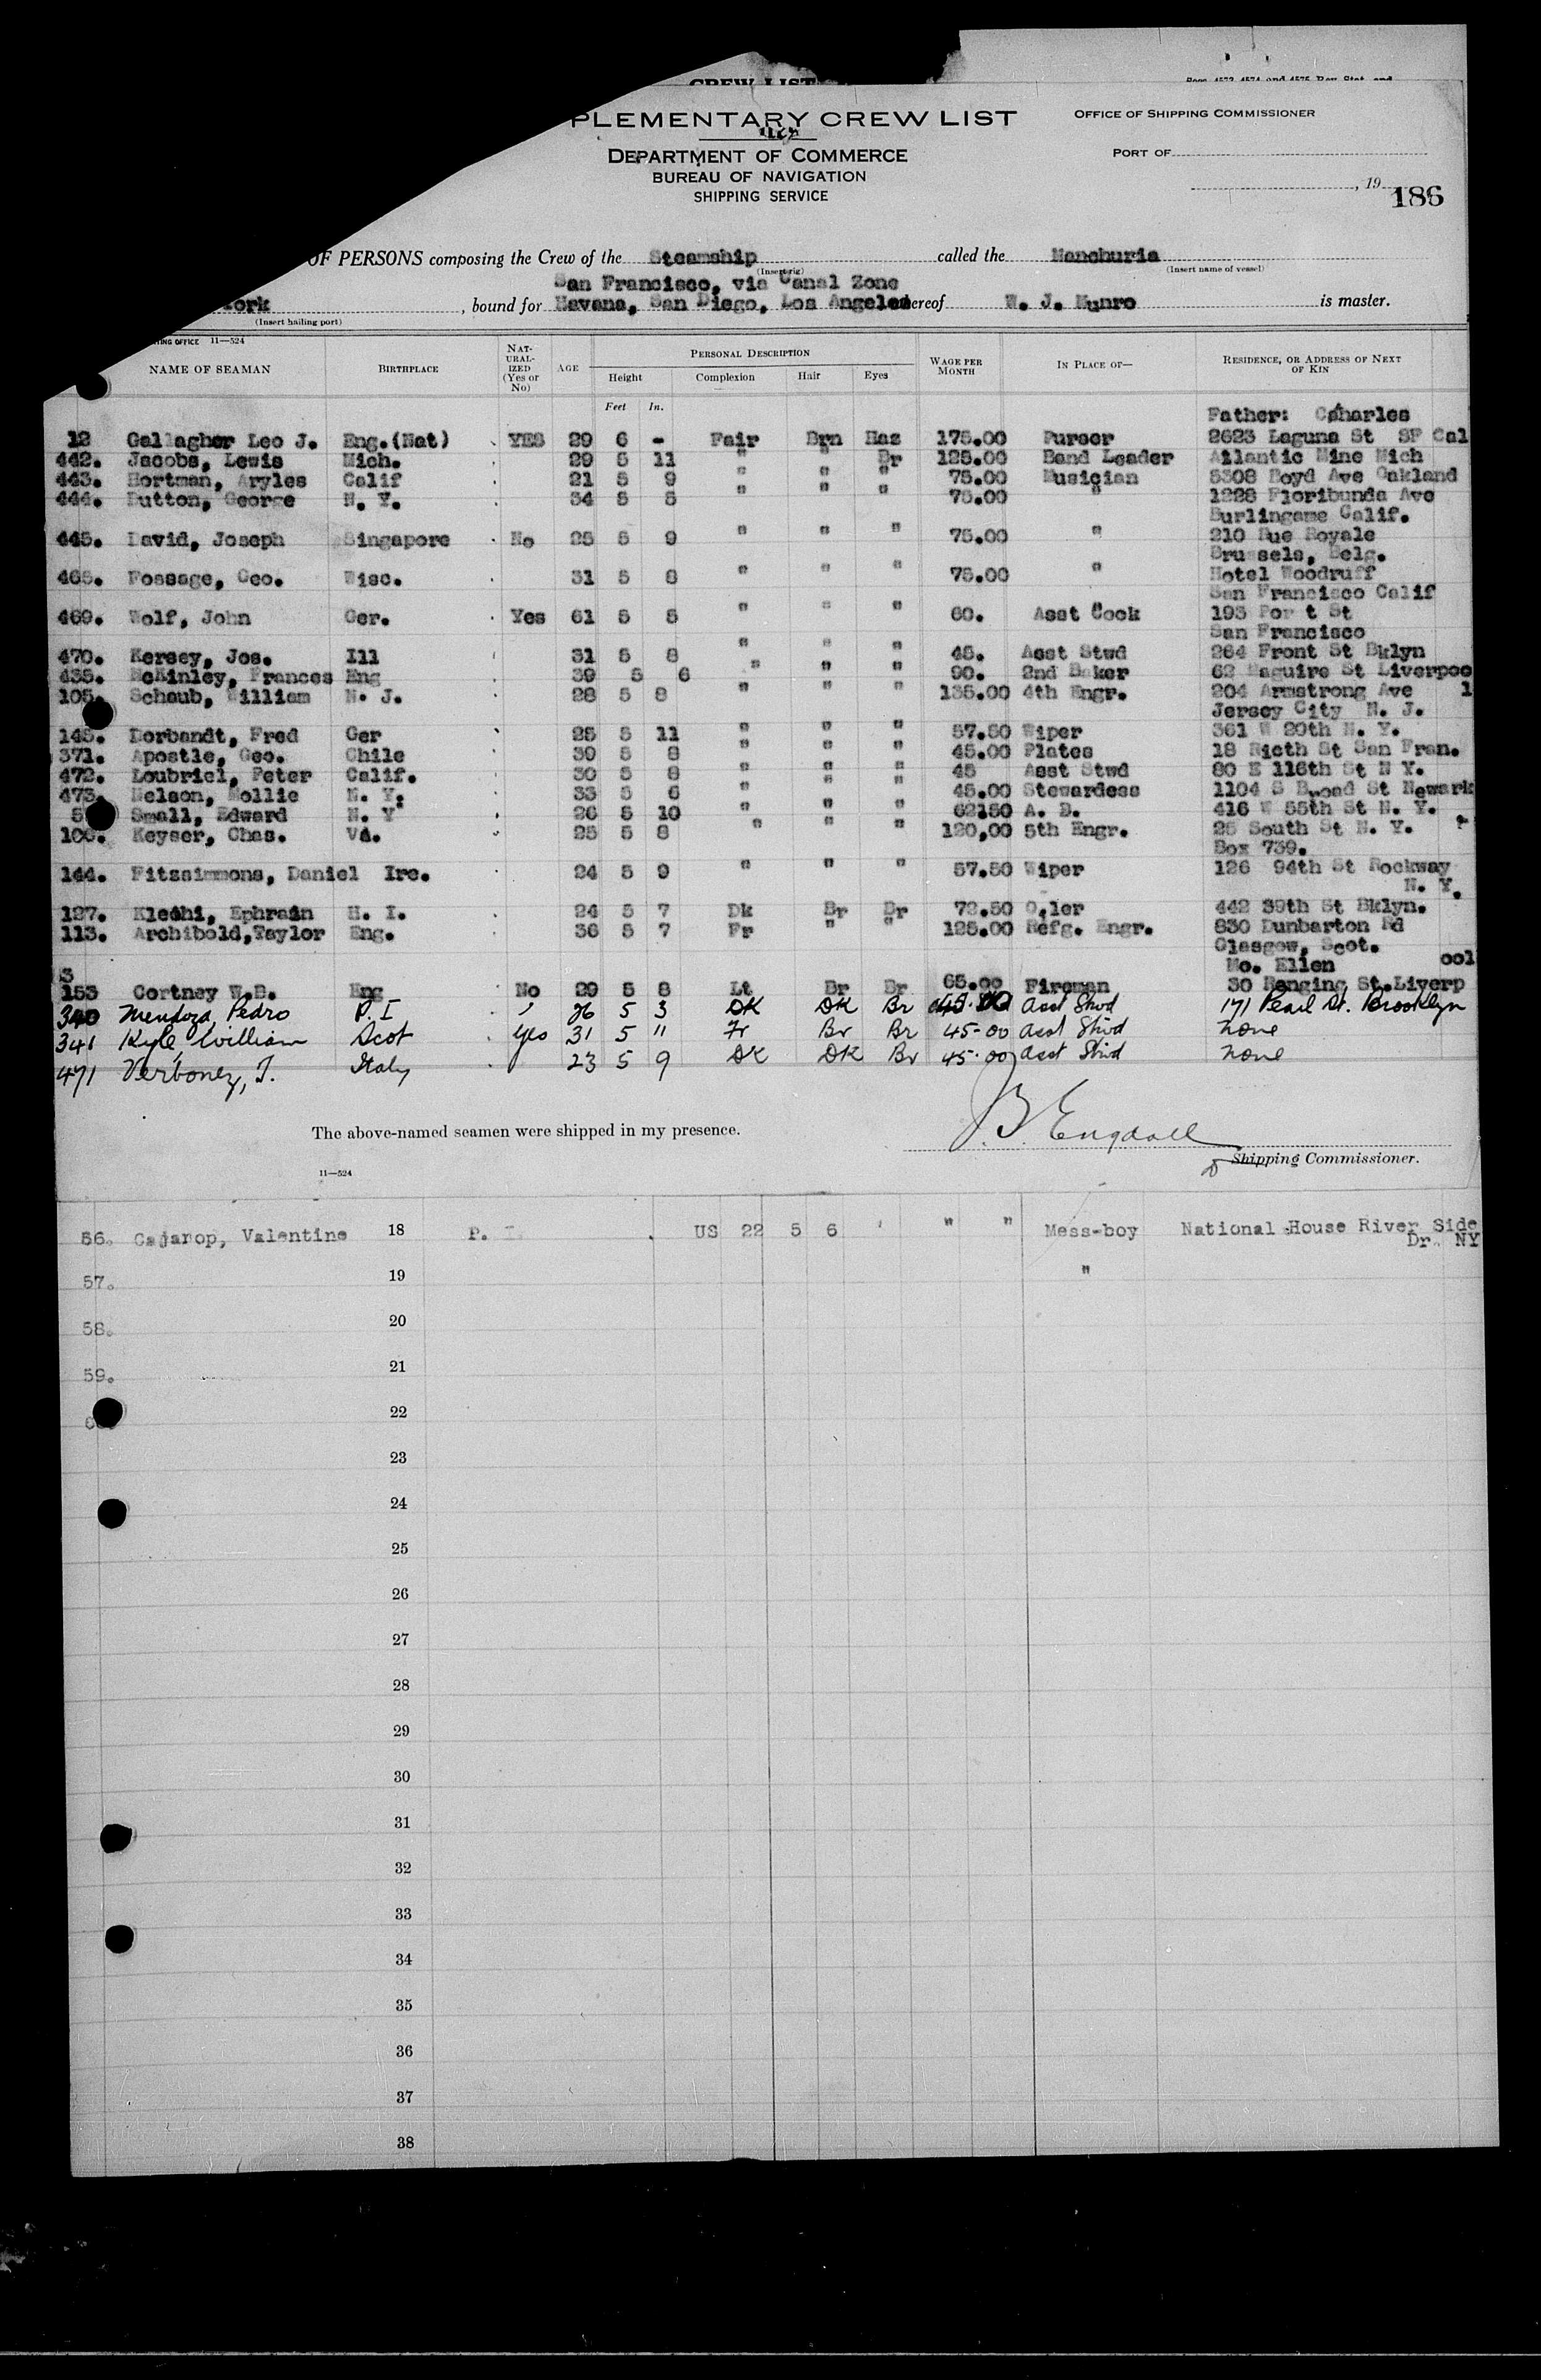 CREW LIST
PLEMENTARY CREW LIST
OFFICE OF SHIPPING COMMISSIONER
DEPARTMENT OF COMMERCE
PORT OF
BUREAU OF NAVIGATION
SHIPPING SERVICE
, 19
186
OF PERSONS composing the Crew of the Steamship called the Manchuria
(Insert rig) (Insert name of vessel)
San Francisco, via Canal Zone
York, bound for Havana, San Diego, Los Angeles whereof W. J. Munro is master.
(Insert hailing port)
TING OFFICE 11—524
NAME OF SEAMAN BIRTHPLACE NAT-URAL-IZED (Yes or No) AGE PERSONAL DESCRIPTION Height Complexion Hair Eyes WAGE PER MONTH IN PLACE OF— RESIDENCE, OR ADDRESS OF NEXT OF KIN
Feet In.
Father: Caharles
12 Gallagher Leo J. Eng.(Nat) YES 29 6 - Fair Brn Haz 175.00 Purser 2623 Laguna St SF Cal
442. Jacobs, Lewis Mich. 29 5 11 " " Br 125.00 Band Leader Atlantic Mine Mich
443. Hortman, Aryles Calif 21 5 9 " " " 75.00 Musician 5308 Boyd Ave Oakland
444. Dutton, George N. Y. 34 5 8 " " " 75.00 " 1228 Floribunda Ave
Burlingame Calif.
445. David, Joseph Singapore No 25 5 9 " " " 75.00 " 210 Rue Royale
Brussels, Belg.
465. Fossage, Geo. Wisc. 31 5 8 " " " 75.00 " Hotel Woodruff
San Francisco Calif
469. Wolf, John Ger. Yes 61 5 8 " " " 60. Asst Cook 193 For t St
San Francisco
470. Kersey, Jos. Ill 31 5 8 " " " 45. Asst Stwd 264 Front St Bklyn
435. McKinley, Frances Eng 39 5 6 " " " 90. 2nd Baker 62 Maguire St Liverpoo
105. Schaub, William N. J. 28 5 8 " " " 135.00 4th Engr. 204 Armstrong Ave l
Jersey City N. J.
145. Dorbandt, Fred Ger 25 5 11 " " " 57.50 Wiper 361 W 20th N. Y.
371. Apostle, Geo. Chile 39 5 8 " " " 45.00 Plates 18 Nicth St San Fran.
472. Loubriel, Peter Calif. 30 5 8 " " " 45 Asst Stwd 80 E 116th St N Y.
473. Nelson, Mollie N. Y. 33 5 6 " " " 45.00 Stewardess 1104 S Broad St Newark
5 Small, Edward N. Y 26 5 10 " " " 62.50 A. B. 416 W 55th St N. Y.
106. Keyser, Chas. Va. 25 5 8 " " " 120,00 5th Engr. 25 South St N. Y.
Box 739.
144. Fitzsimmons, Daniel Ire. 24 5 9 " " " 57.50 Wiper 126 94th St Rockway
N. Y.
127. Kleahi, Ephrain H. I. 24 5 7 Dk Br Br 72.50 Oiler 442 39th St Bklyn.
113. Archibold,Taylor Eng. 36 5 7 Fr " " 125.00 Refg. Engr. 830 Dunbarton Rd
Glasgow, Scot.
S Mo. Ellen ool
153 Cortney W.B. Eng No 29 5 8 Lt Br Br 65.00 Fireman 30 Benging St.Liverp
340 Mendoza, Pedro P.I " 26 5 3 DK DK Br 45.00 Asst Stwd 171 Pearl St. Brooklyn
341 Kyle, William Scot yes 31 5 11 Fr Br Br 45.00 Asst Stwd none
471 Verbonez, T. Italy 23 5 9 DK DK Br 45.00 Asst Stwd none
The above-named seamen were shipped in my presence.
J. B. Engdall
Shipping Commissioner.
11—524
56. Cajanop, Valentine 18 P. I. US 22 5 6 ' " " Mess-boy National House River Side
Dr. NY
57. 19 "
58. 20
59. 21
22
23
24
25
26
27
28
29
30
31
32
33
34
35
36
37
38